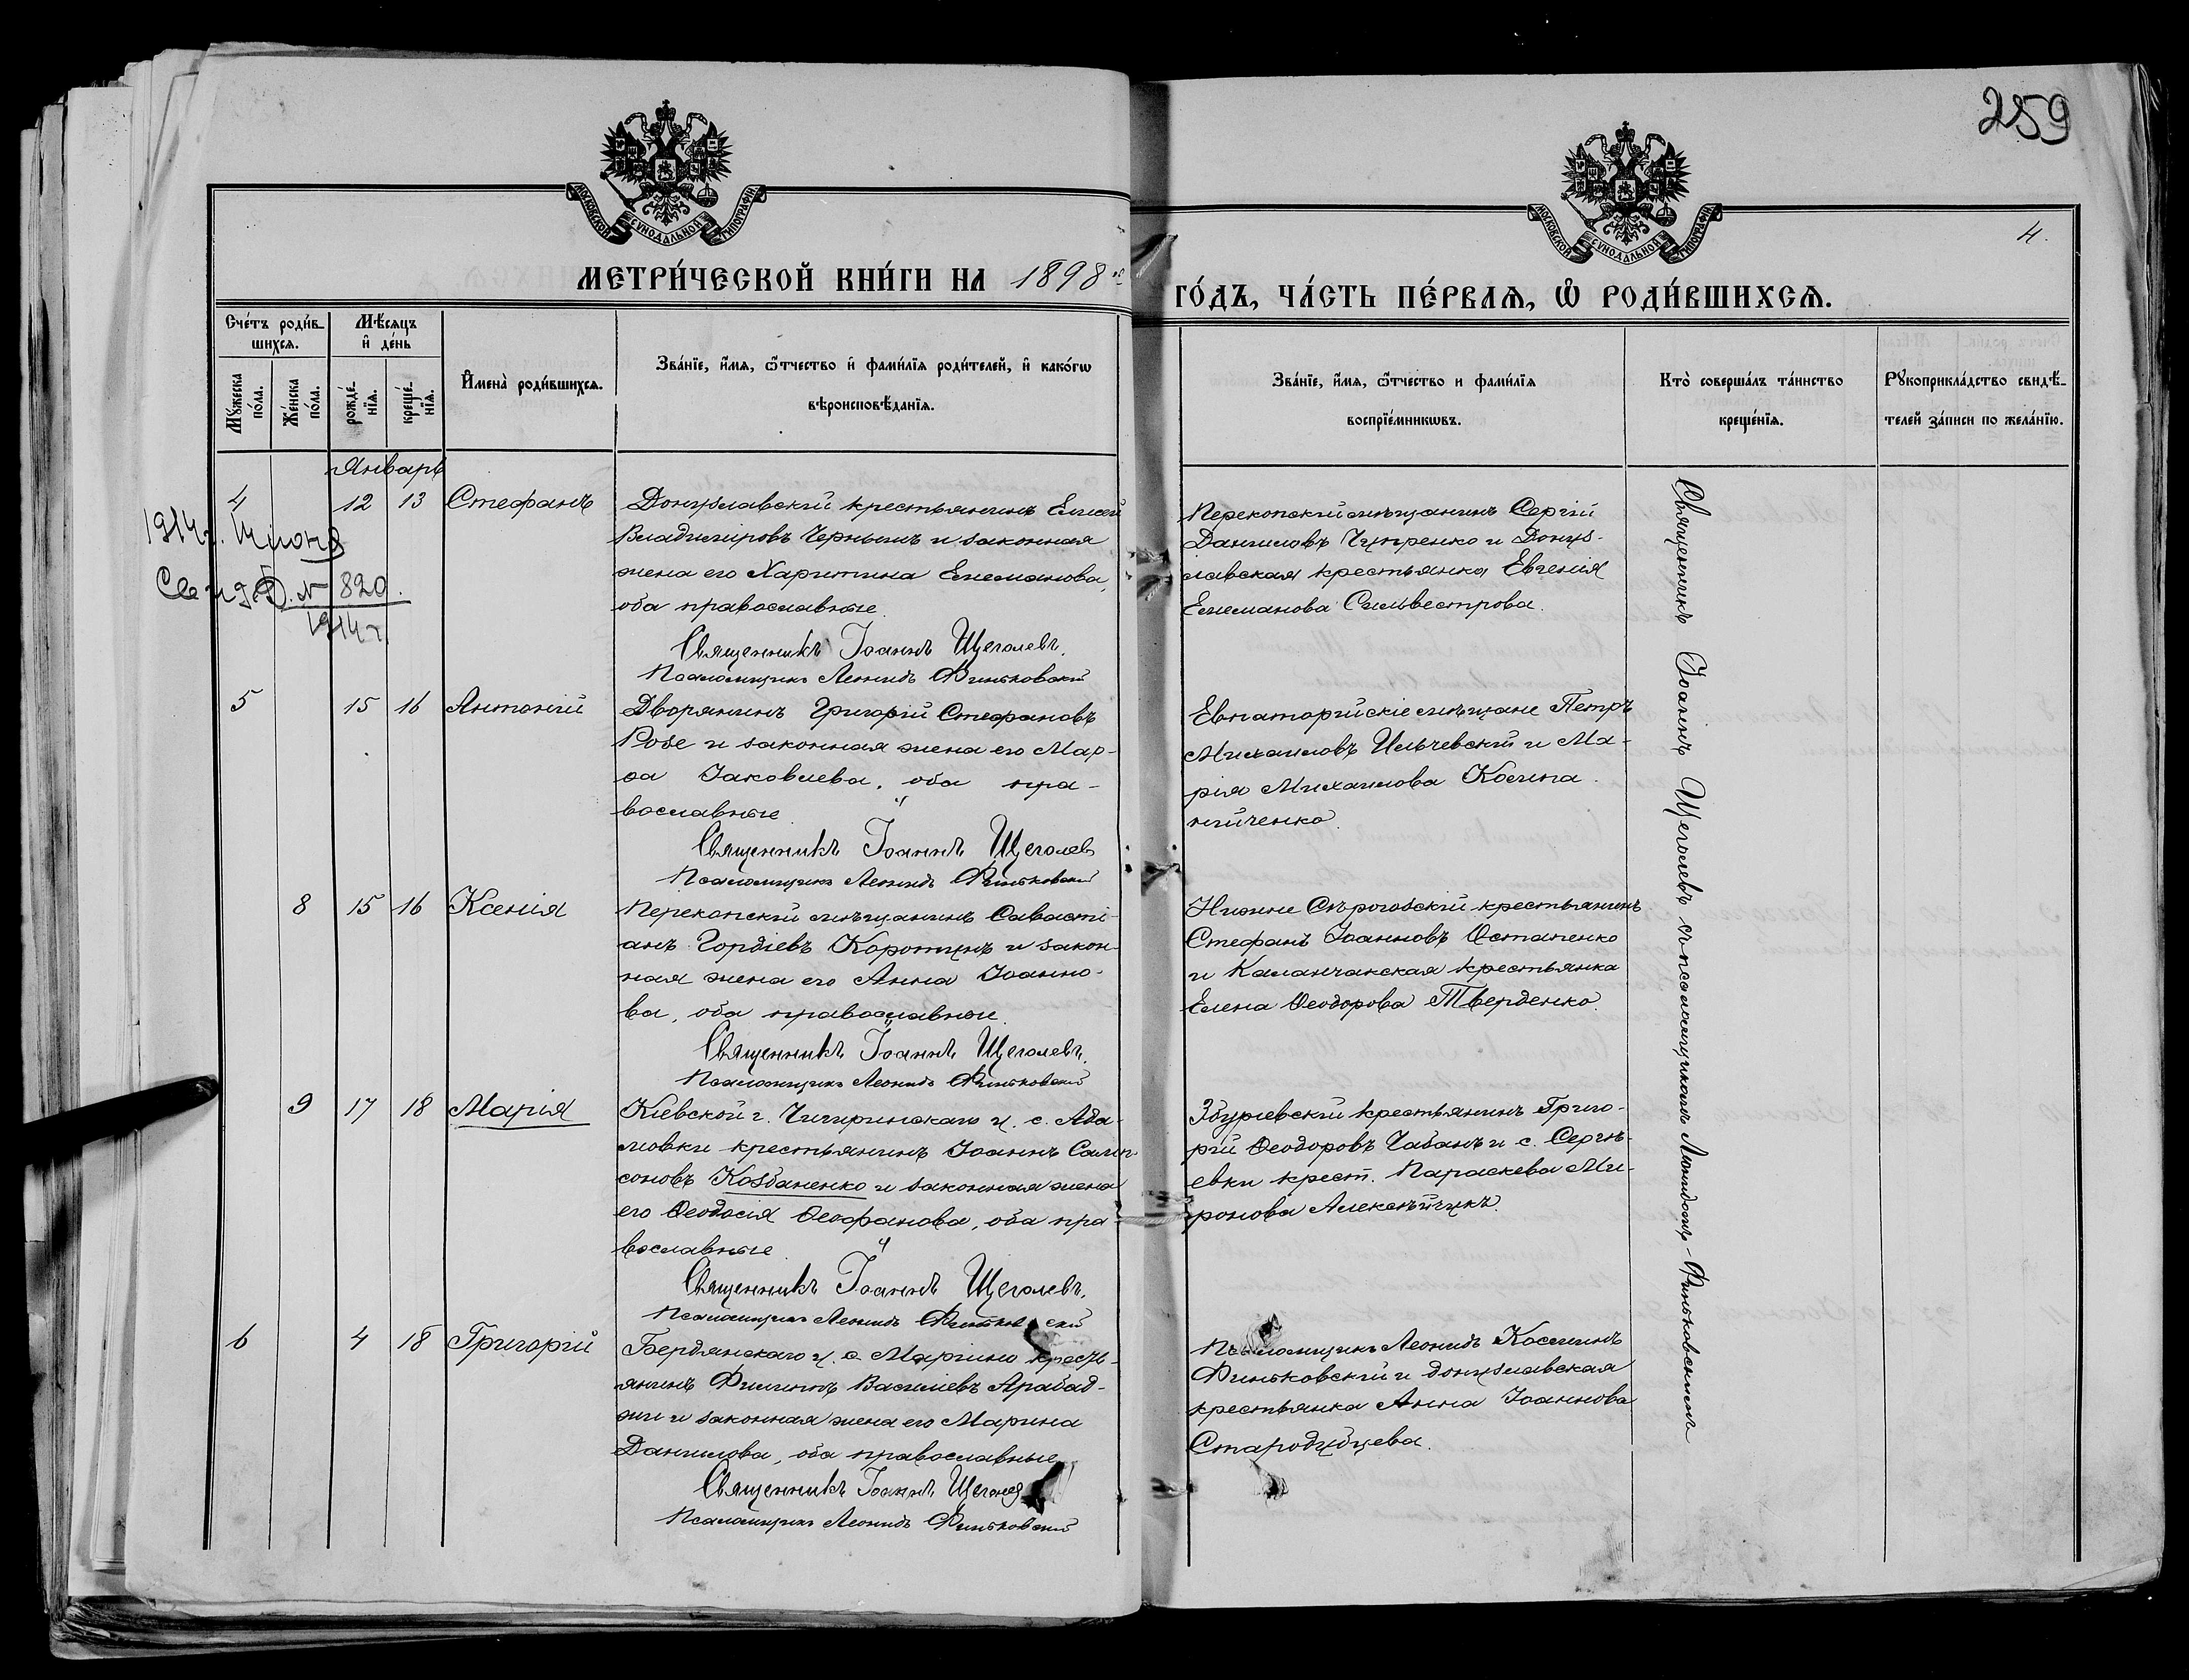 259
4.
МОСКОВСКОЙ СѴНОДАЛЬНОЙ ТИПОГРАФІИ
МОСКОВСКОЙ СѴНОДАЛЬНОЙ ТИПОГРАФІИ
МЕТРИ́ЧЕСКОЙ КНИ́ГИ НА 1898 й
ГО́ДЪ, ЧА́СТЬ ПЕ́РВАѦ, Ѡ҆ РОДИ́ВШИХСѦ.
Сче́тъ роди́в-
шихсѧ.
Мѣ́сѧцъ
и҆ де́нь
Мꙋ́жеска
по́ла.
Же́нска
по́ла.
рожде́-
нїѧ.
креще́-
нїѧ.
И҆мена̀ роди́вшихсѧ.
Зва́нїе, и҆́мѧ, ѻ҆́тчество и҆ фами́лїѧ роди́телей, и҆ како́гѡ
вѣроисповѣ́данїѧ.
Зва́нїе, и҆́мѧ, ѻ҆́тчество и фами́лїѧ
воспрїе́мникѡвъ.
Кто̀ соверша́лъ та́инство
креще́нїѧ.
Рꙋкоприкла́дство свидѣ́-
телей за́писи по жела́нїю.
Январь
4 12 13 Стефанъ
Донузлавскій крестьянинъ Елисей
Владимировъ Чернышъ и законная
жена его Харитина Емельянова,
оба православные.
Священникъ Іоаннъ Щеголевъ.
Псаломщикъ Леонидъ Финьковскій
Перекопскій мѣщанинъ Сергій
Даниловъ Чупренко и Донуз-
лавская крестьянка Евгенія
Емельянова Сильвестрова.
1914 г. Июня
Свид. № 820.
1914 г.
5 15 16 Антоній
Дворянинъ Григорій Стефановъ
Розе и законная жена его Мар-
ѳа Іаковлева, оба пра-
вославные.
Священникъ Іоаннъ Щеголев
Псаломщикъ Леонидъ Финьковскій
Евпаторійскіе мѣщане Петръ
Михаиловъ Ильчевскій и Ма-
рія Михаилова Косина
нійченко.
8 15 16 Ксенія
Перекопскій мѣщанинъ Савасті-
анъ Гордіевъ Коротунъ и закон-
ная жена его Анна Іоанно-
ва, оба православные.
Священникъ Іоаннъ Щеголевъ.
Псаломщикъ Леонидъ Финьковскій
Нижне Сѣрогозскій крестьянинъ
Стефанъ Іоанновъ Остапенко
и Каланчакская крестьянка
Елена Ѳеодорова Тверденко.
9 17 18 Марія
Кіевской г. Чигиринскаго у. с. Ада-
мовки крестьянинъ Іоаннъ Самп-
соновъ Козбаненко и законная жена
его Ѳеодосія Ѳеофанова, оба пра-
вославные.
Священникъ Іоаннъ Щеголевъ.
Псаломщикъ Леонидъ Финьковскій
Збурьевскій крестьянинъ Григо-
рій Ѳеодоровъ Чабанъ и с. Сергѣ-
евки крест. Параскева Ми-
ронова Алексѣйчукъ.
6 4 18 Григорій
Бердянскаго у. с. Маріино кресть-
янинъ Филиппъ Василіевъ Арабад-
жи и законная жена его Марина
Данилова, оба православные
Священникъ Іоаннъ Щеголев
Псаломщикъ Леонидъ Финьковскій
Псаломщикъ Леонидъ Косминъ
Финьковскій и донузлавская
крестьянка Анна Іоаннова
Стародубцева.
Священникъ Іоаннъ Щеголевъ съ псаломщикомъ Леонидомъ Финьковскимъ